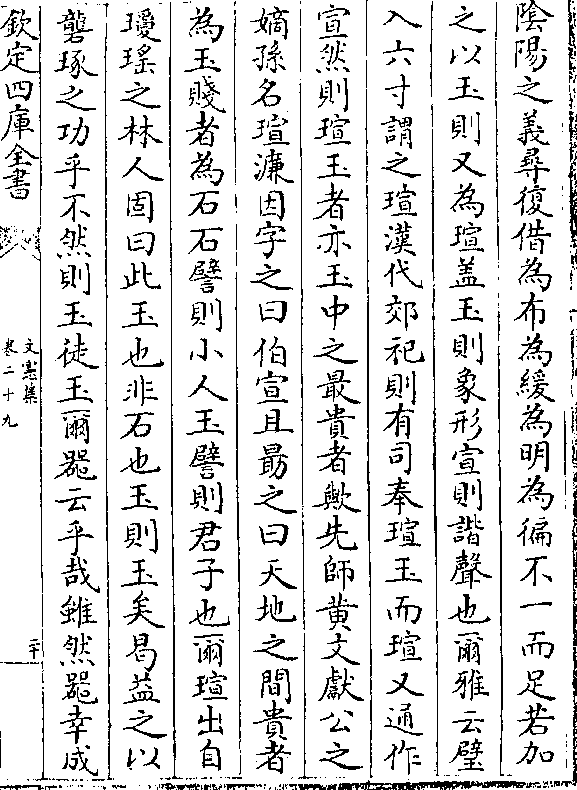 陰陽之義尋復借為布為緩為明為徧不一而足若加
之以玉則又為瑄盖玉則象形宣則諧聲也爾雅云璧
入六寸謂之瑄漢代郊祀則有司奉瑄玉而瑄又通作
宣然則瑄玉者亦玉中之最貴者歟先師黄文獻公之
嫡孫名瑄濂因字之曰伯宣且勗之曰天地之間貴者
為玉賤者為石石譬則小人玉譬則君子也爾瑄出自
瓊瑤之林人固曰此玉也非石也玉則玉矣曷益之以
礱琢之功乎不然則玉徒玉爾器云乎哉雖然器幸成
欽定四庫全書
文憲集
卷二十九
二十